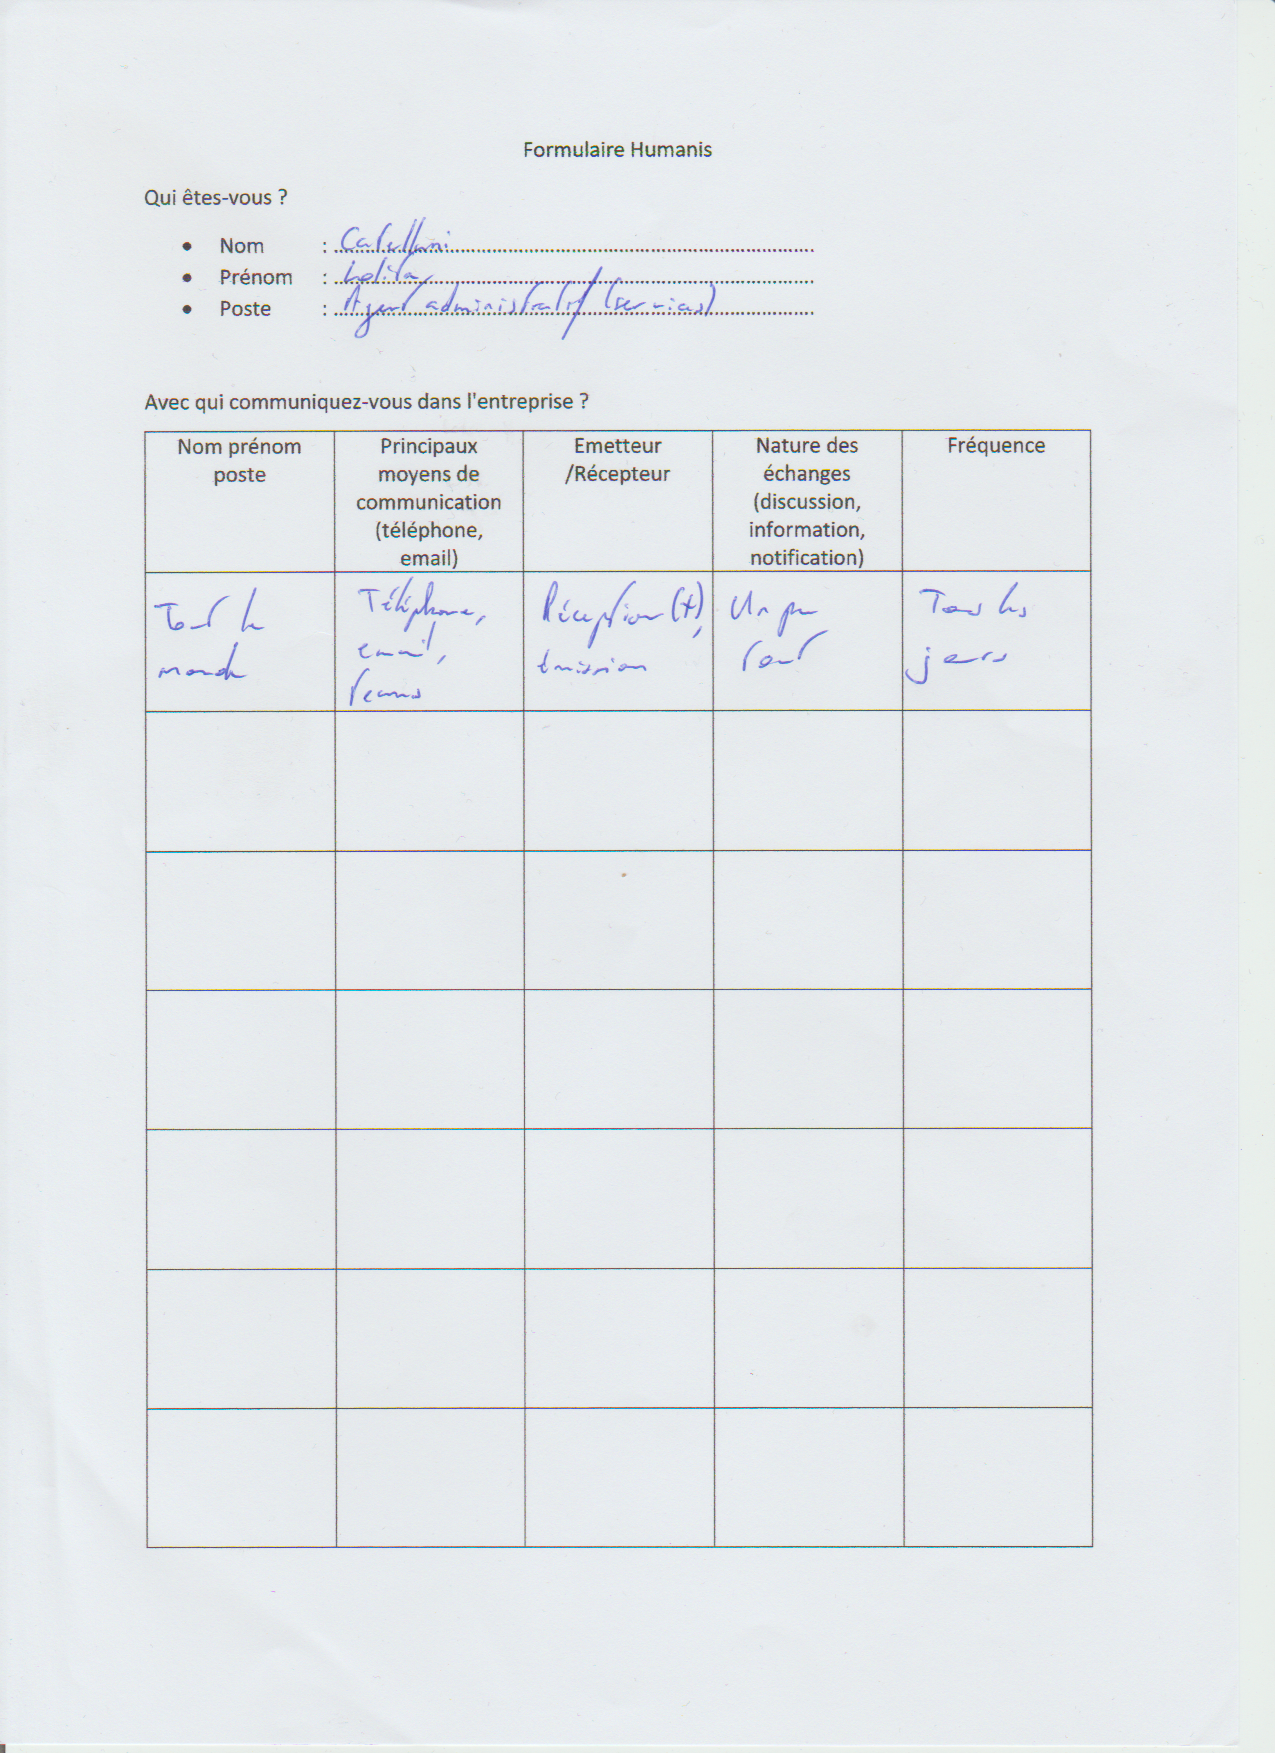 Formulaire Humanis
Qui êtes-vous ?
• Nom : Catellani
• Prénom : Lolita
• Poste : Agent administratif (services)
Avec qui communiquez-vous dans l'entreprise ?
Nom prénom
poste
Principaux
moyens de
communication
(téléphone,
email)
Emetteur
/Récepteur
Nature des
échanges
(discussion,
information,
notification)
Fréquence
Tout le
monde
Téléphone,
email,
teams
Réception (+),
émission
Un peu
tout
Tous les
jours